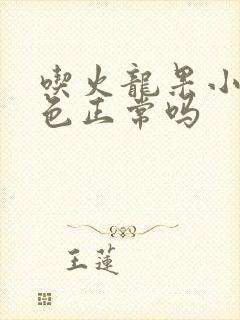 喫火龍果小
色正常嗎
王蓮